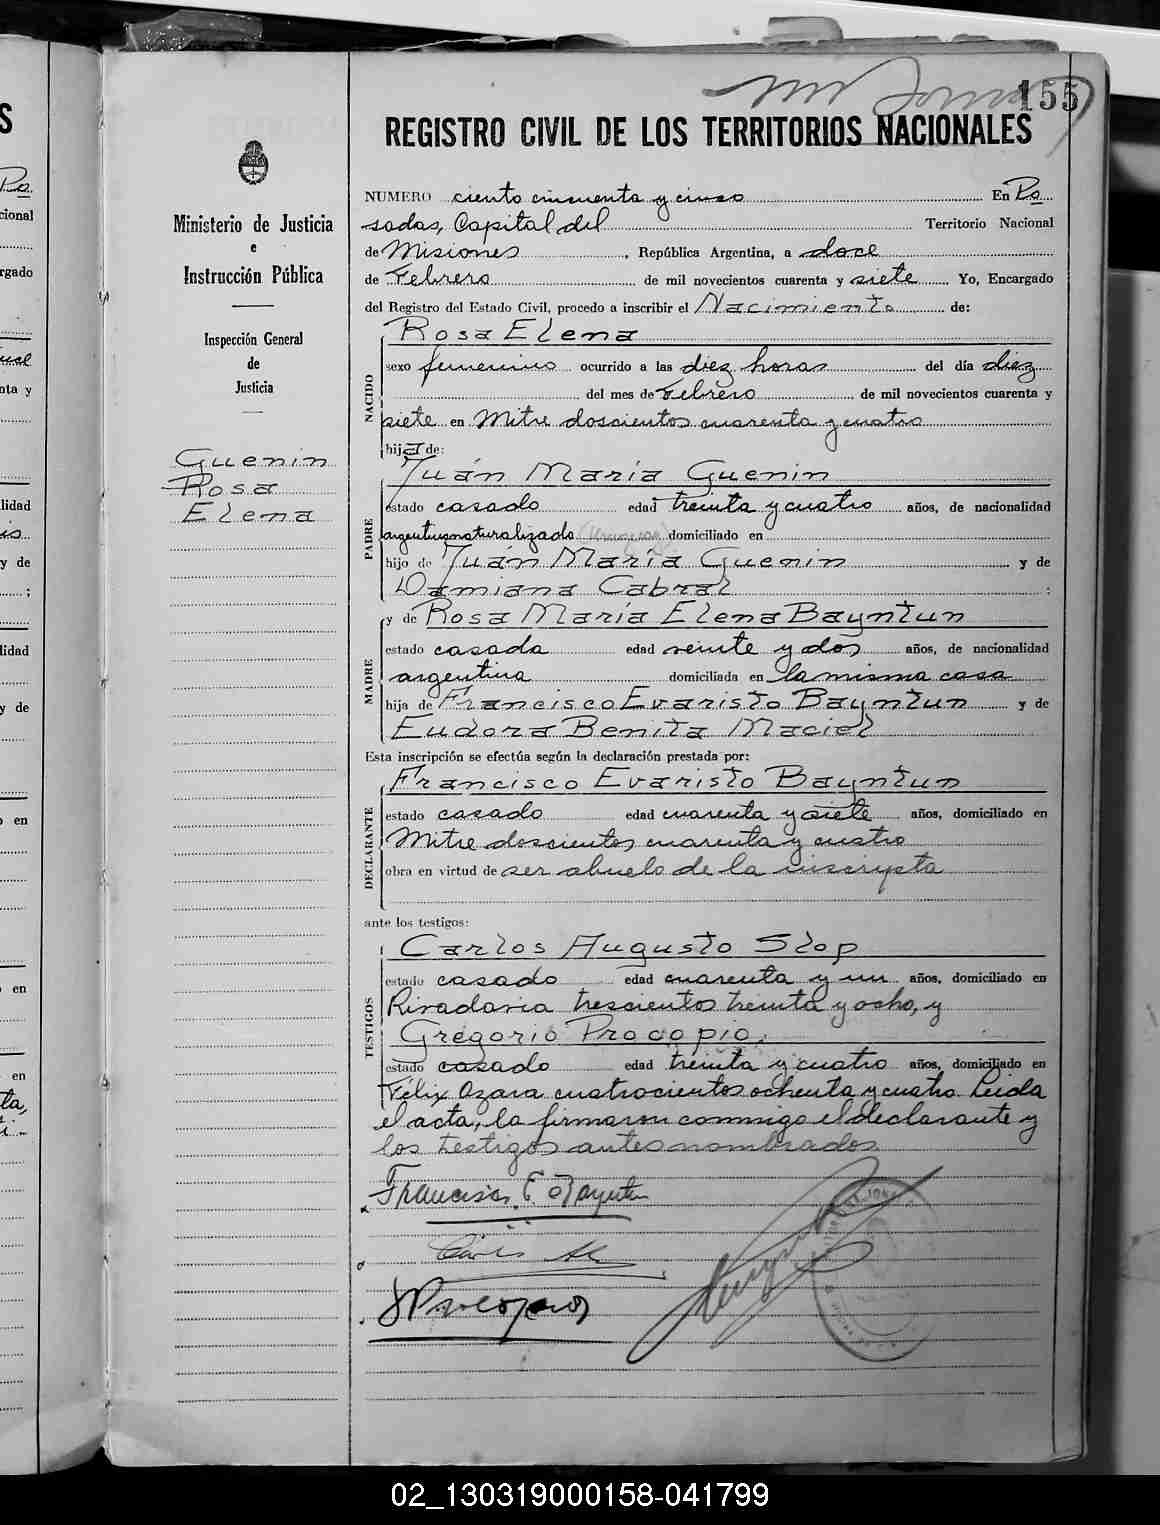 155
REGISTRO CIVIL DE LOS TERRITORIOS NACIONALES
Ministerio de Justicia
e
Instrucción Pública
Inspección General
de
Justicia
Guenin
Rosa
Elena
NUMERO ciento cincuenta y cinco En Po
sadas, Capital del Territorio Nacional
de Misiones, República Argentina, a doce
de Febrero de mil novecientos cuarenta y siete Yo, Encargado
del Registro del Estado Civil, procedo a inscribir el Nacimiento de:
NACIDO
Rosa Elena
sexo femenino ocurrido a las diez horas del día diez
del mes de Febrero de mil novecientos cuarenta y
siete en Mitre doscientos cuarenta y cuatro
hija de:
PADRE
Juán María Guenin
estado casado edad treinta y cuatro años, de nacionalidad
argentino naturalizado (Uruguay) domiciliado en
hijo de Juán María Guenin y de
Damiana Cabral :
MADRE
y de Rosa María Elena Bayntun
estado casada edad veinte y dos años, de nacionalidad
argentina domiciliada en la misma casa
hija de Francisco Evaristo Bayntun y de
Eudora Benita Maciel
Esta inscripción se efectúa según la declaración prestada por:
DECLARANTE
Francisco Evaristo Bayntun
estado casado edad cuarenta y siete años, domiciliado en
Mitre doscientos cuarenta y cuatro
obra en virtud de ser abuelo de la inscripta
ante los testigos:
TESTIGOS
Carlos Augusto Slop
estado casado edad cuarenta y un años, domiciliado en
Rivadavia trescientos treinta y ocho, y
Gregorio Procopio,
estado casado edad treinta y cuatro años, domiciliado en
Félix Azara cuatrocientos ochenta y cuatro. Leida
el acta, la firmaron conmigo el declarante y
los testigos antes nombrados.
Francisco E. Bayntun
02_130319000158-041799